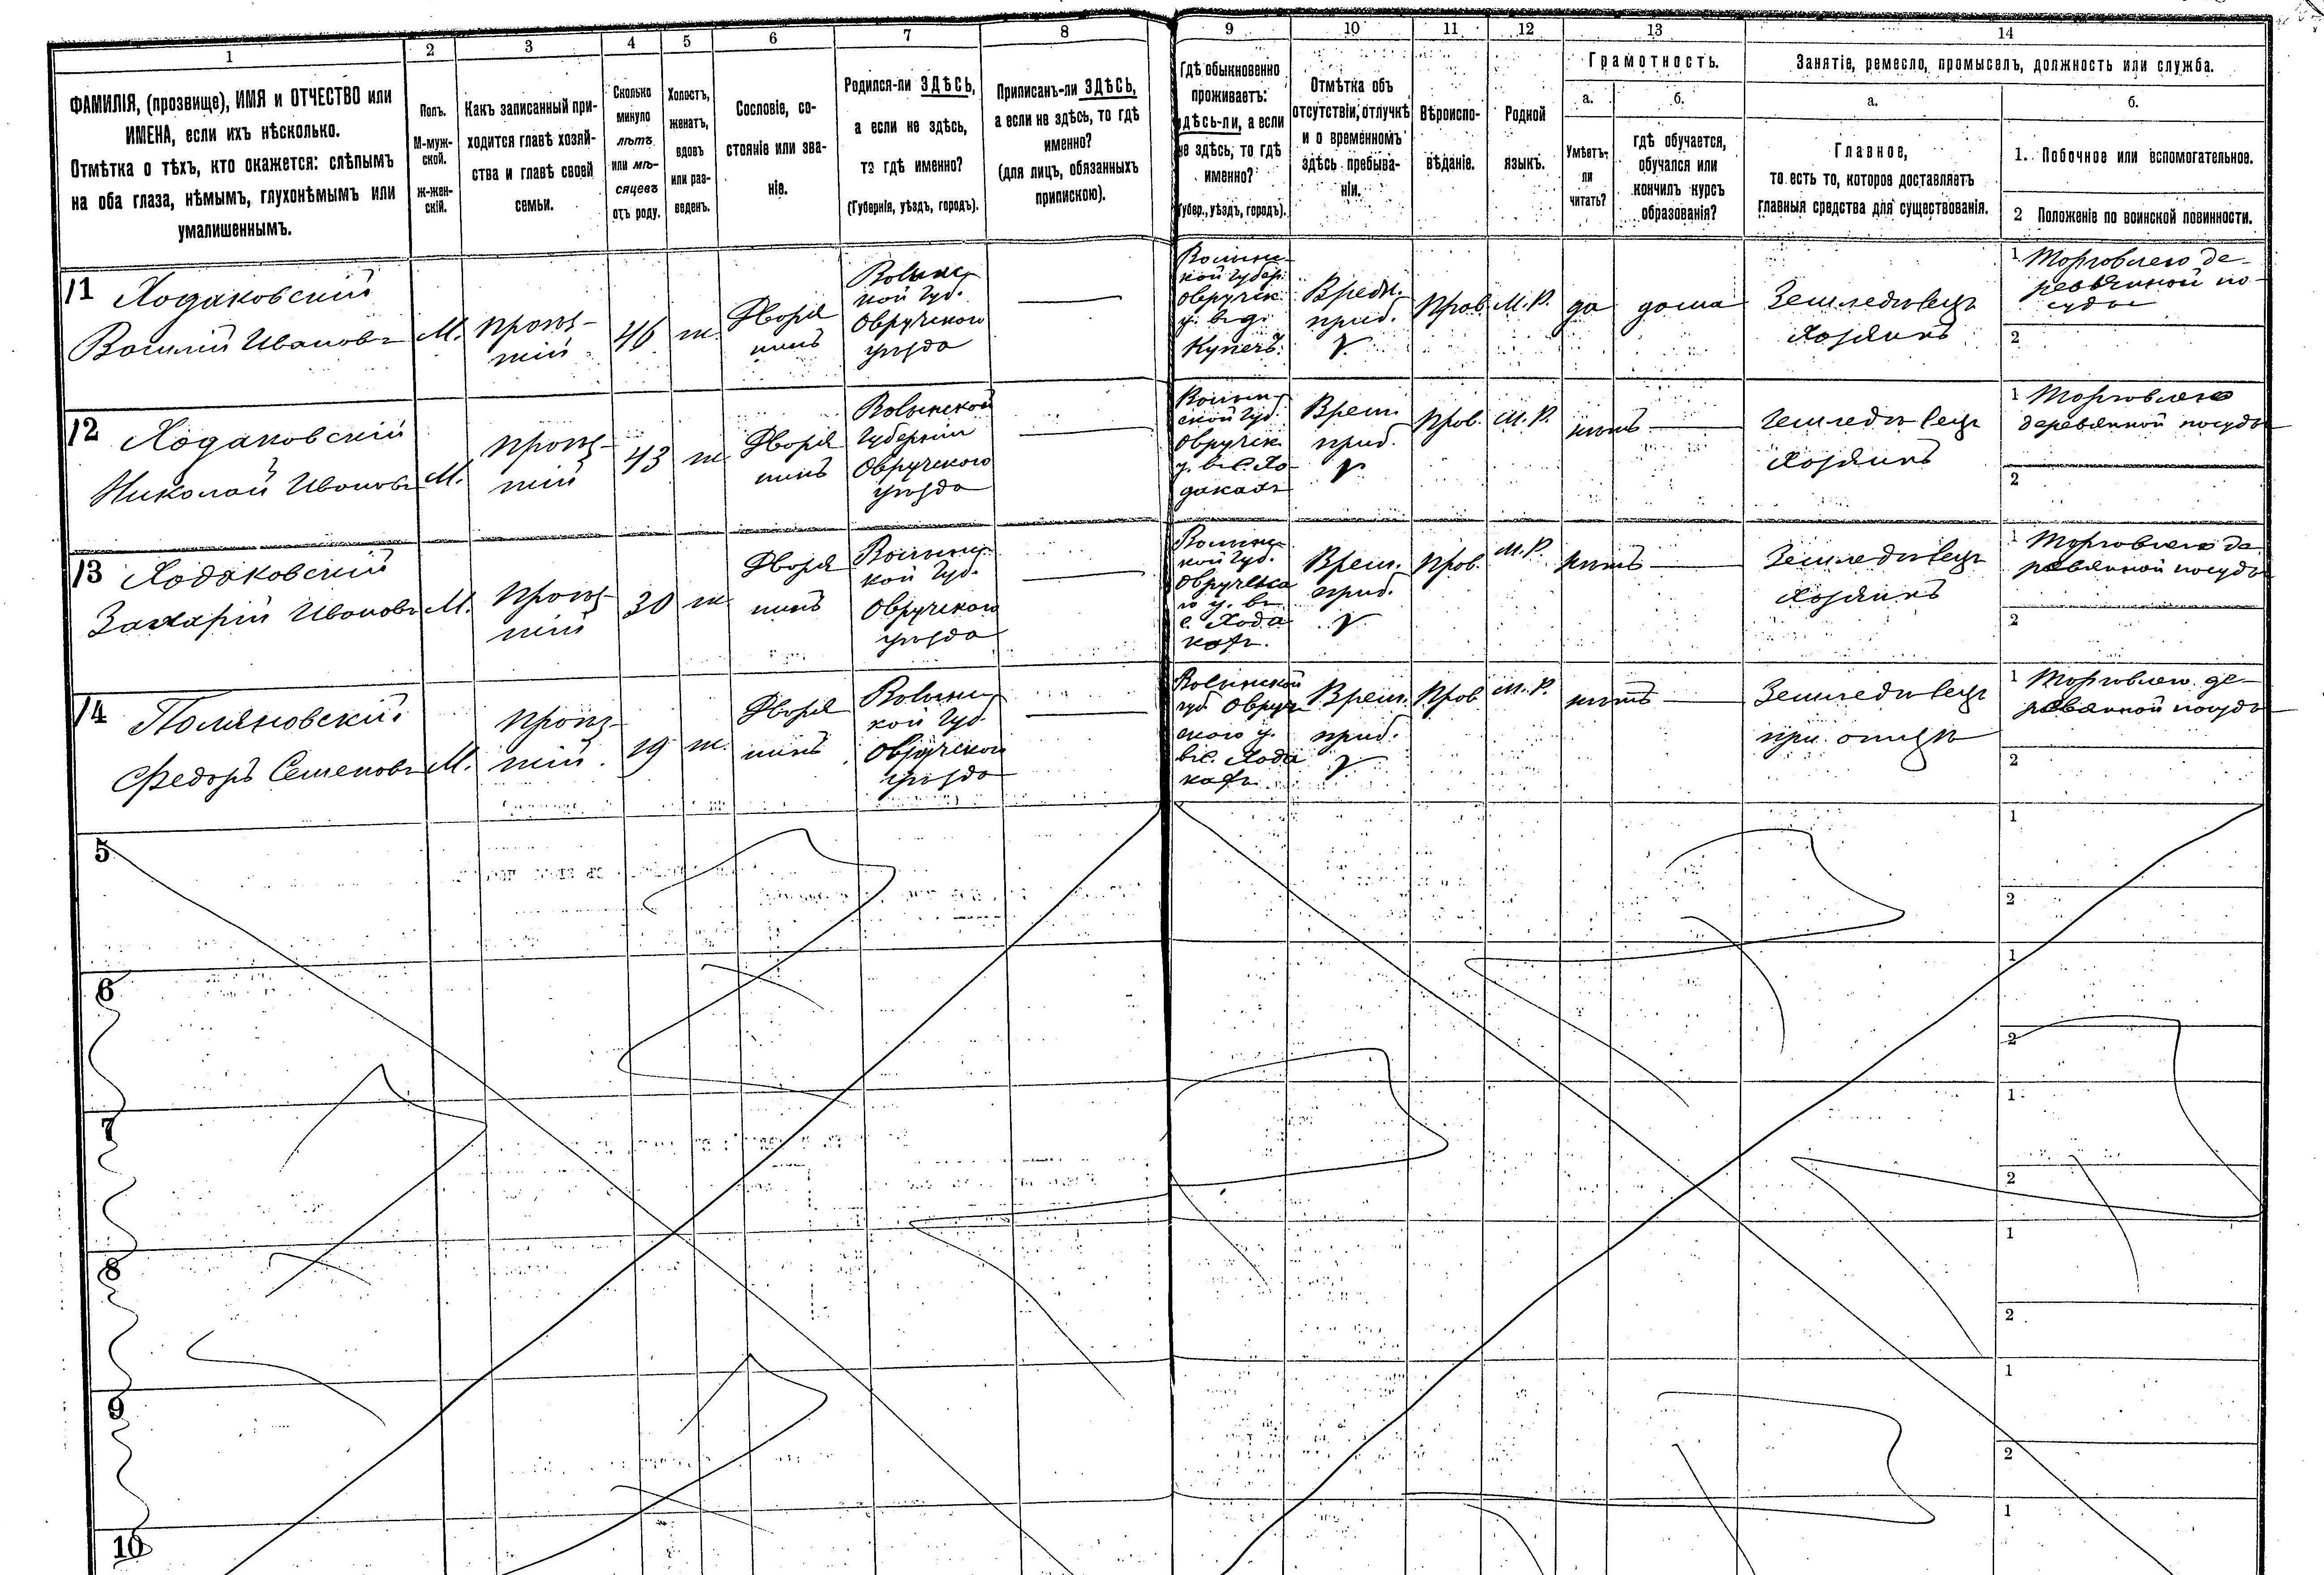 1 2 3 4 5 6 7 8 9 10 11 12 13 14
ФАМИЛІЯ, (прозвище), ИМЯ и ОТЧЕСТВО или
ИМЕНА, если ихъ нѣсколько.
Отмѣтка о тѣхъ, кто окажется: слѣпымъ
на оба глаза, нѣмымъ, глухонѣмымъ или
умалишеннымъ.
Полъ.
М-муж-
ской.
Ж-жен-
скій.
Какъ записанный при-
ходится главѣ хозяй-
ства и главѣ своей
семьи.
Сколько
минуло
лѣтъ
или мѣ-
сяцевъ
отъ роду.
Холостъ,
женатъ,
вдовъ
или раз-
веденъ.
Сословіе, со-
стояніе или зва-
ніе.
Родился-ли ЗДѢСЬ,
а если не здѣсь,
то гдѣ именно?
(Губернія, уѣздъ, городъ).
Приписанъ-ли ЗДѢСЬ,
а если не здѣсь, то гдѣ
именно?
(для лицъ, обязанныхъ
припискою).
Гдѣ обыкновенно
проживаетъ:
здѣсь-ли, а если
не здѣсь, то гдѣ
именно?
(Губер., уѣздъ, городъ).
Отмѣтка объ
отсутствіи, отлучкѣ
и о временномъ
здѣсь пребыва-
ніи.
Вѣроиспо-
вѣданіе.
Родной
языкъ.
Грамотность.
а.
Умѣетъ-
ли
читать?
б.
гдѣ обучается,
обучался или
кончилъ курсъ
образованія?
Занятіе, ремесло, промыселъ, должность или служба.
а.
Главное,
то есть то, которое доставляетъ
главныя средства для существованія.
б.
1. Побочное или вспомогательное.
2 Положеніе по воинской повинности.
11 Ходаковскій
Василій Ивановъ
М.
проѣз-
жій
46
ж.
Дворя
нинъ
Волынс
кой губ.
Овручского
уѣзда
Волынс
кой губер.
Овручск.
у. въ д.
Врем.
приб.
Прав.
М.Р.
да
дома
Земледѣлецъ
Хозяинъ
1 Торговлею де-
ревянной по-
суды
2
12 Ходаковскій
Николай Ивановъ
М.
проѣз-
жій
43
ж
Дворя
нинъ
Волынской
Губерніи
Овручского
уѣзда
Волын
ской губ.
Овручск.
у. въ с. Хо
дакахъ
Врем.
приб.
Прав.
М.Р.
нѣтъ
Земледѣлецъ
Хозяинъ
1 Торговлею
деревянной посуды
2
13 Ходаковскій
Захарій Ивановъ
М.
проѣз
жій
30
ж
Дворя
нинъ
Волынс
кой губ.
Овручского
уѣзда
Волынс
кой губ.
Овручска
го у. въ
с. Хода
кахъ.
Врем.
приб.
Прав.
М.Р.
нѣтъ
Земледѣлецъ
Хозяинъ
1 Торговлею де
ревянной посуды
2
14 Поляновскій
Федоръ Семеновъ
М.
проѣз
жій.
19
ж.
Дворя
нинъ
Волынс
кой губ.
Овручского
уѣзда
Волынской
губ. Овруч
ского у.
въ с. Хода
кахъ
Врем.
приб.
Прав
М.Р.
нѣтъ
Земледѣлецъ
при отцѣ
1 Торговлею де-
ревянной посуды
2
5
1
2
6
1
2
7
1
2
8
1
2
9
1
2
10
1